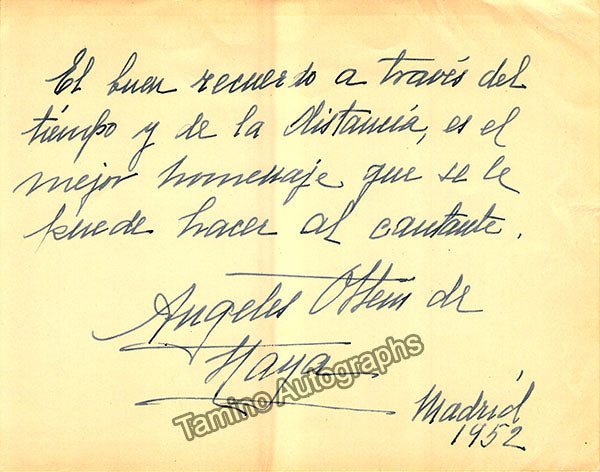 El buen recuerdo a través del
tiempo y de la distancia, es el
mejor homenaje que se le
puede hacer al cantante.
Angeles Ottein de
Haya
Tamino Autographs
Madrid
1952